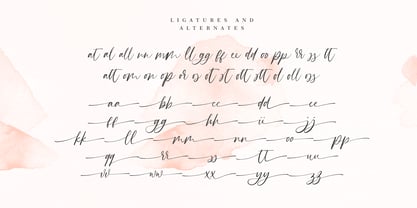 LIGATURES AND
ALTERNATES
at al all un mm ll gg ff cc dd oo pp rr ss tt
alt om on op or os ot st ott stt d ell oss
aa bb cc dd ee
ff gg hh ii jj
kk ll mm nn oo pp
qq rr ss tt uu
vv ww xx yy zz